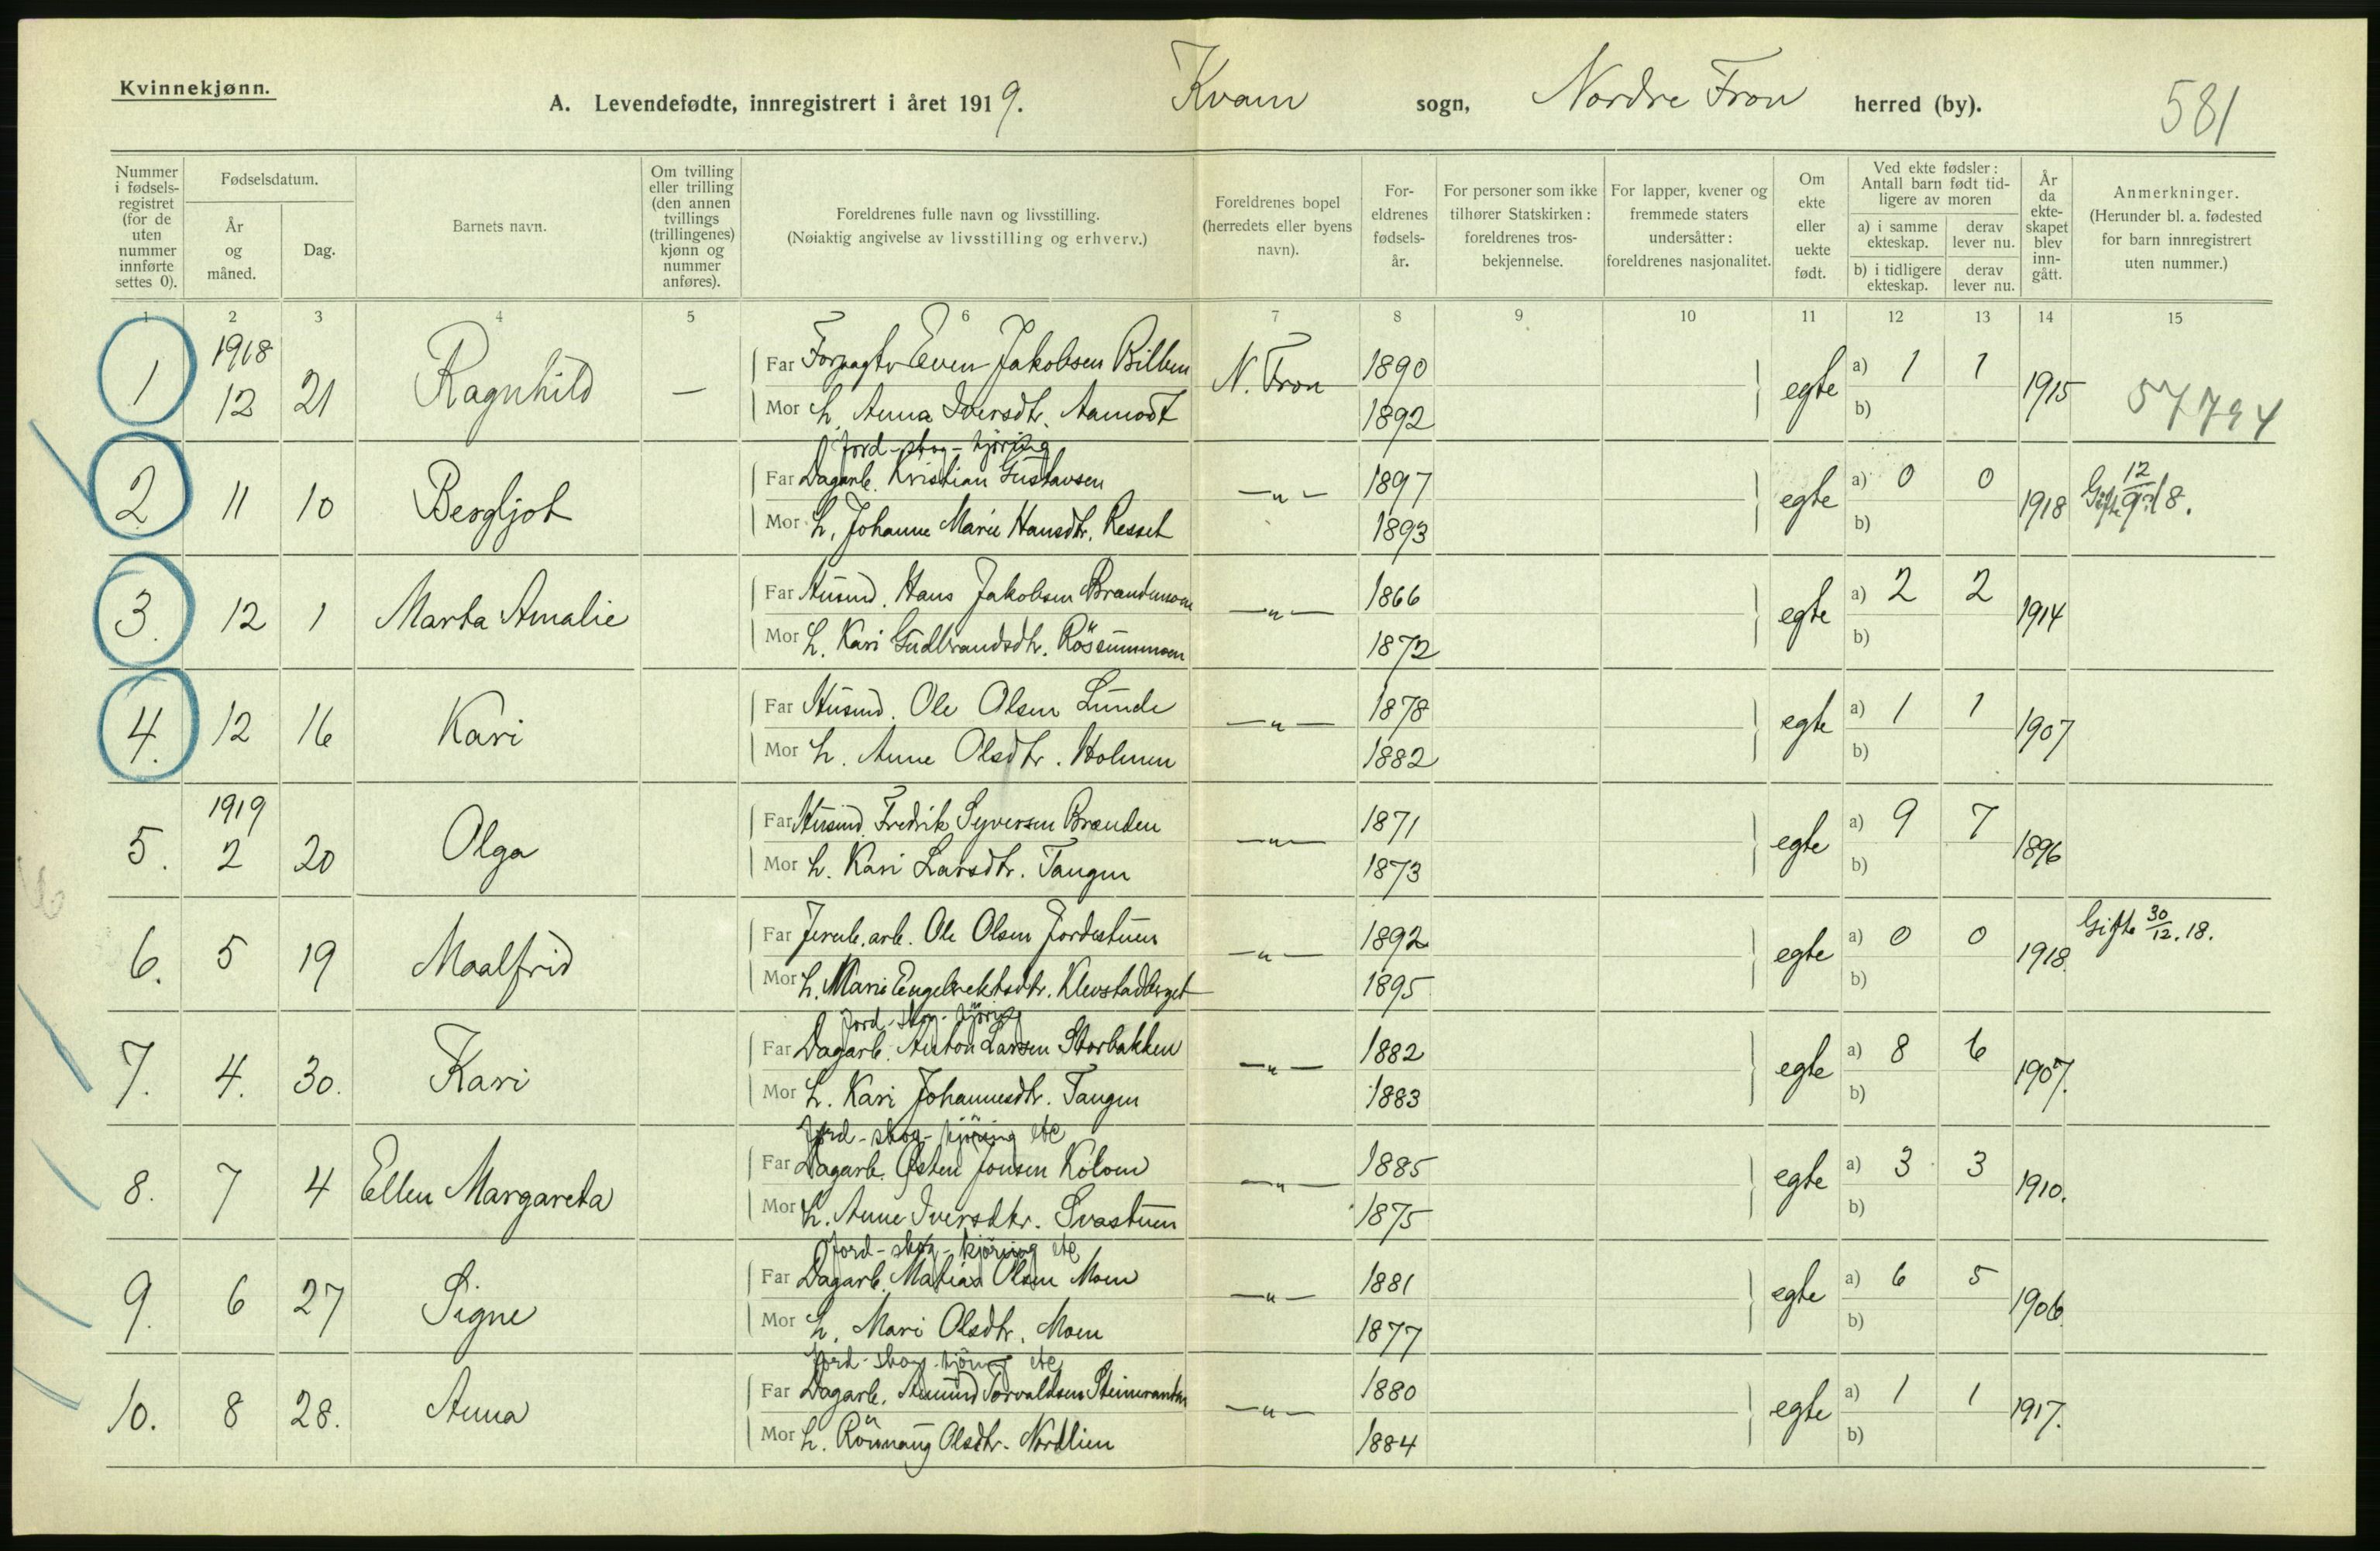 Kvinnekjønn.
A. Levendefødte, innregistrert i året 1919. Kvam sogn, Nordre Fron herred (by). 581
Nummer i fødselsregistret (for de uten nummer innførte settes 0).
Fødselsdatum.
År og måned.
Dag.
Barnets navn.
Om tvilling eller trilling (den annen tvillings (trillingenes) kjønn og nummer anføres).
Foreldrenes fulle navn og livsstilling.
(Nøiaktig angivelse av livsstilling og erhverv.)
Foreldrenes bopel (herredets eller byens navn).
Foreldrenes fødselsår.
For personer som ikke tilhører Statskirken: foreldrenes trosbekjennelse.
For lapper, kvener og fremmede staters undersåtter: foreldrenes nasjonalitet.
Om ekte eller uekte født.
Ved ekte fødsler: Antall barn født tidligere av moren
a) i samme ekteskap.
derav lever nu.
b) i tidligere ekteskap.
derav lever nu.
År da ekteskapet blev inngått.
Anmerkninger.
(Herunder bl. a. fødested for barn innregistrert uten nummer.)
1 2 3 4 5 6 7 8 9 10 11 12 13 14 15
1918
1 12 21 Ragnhild — Far Forpagter Even Jakobsen Billen N. Fron 1890 egte a) 1 1 1915 57794
Mor h. Anna Iversdtr. Aamodt 1892 b)
Jord-skog-kjöring
2 11 10 Bergljot Far Dagarb. Kristian Gustavsen —"— 1897 egte a) 0 0 1918 Gifte 12/9 18.
Mor h. Johanne Marie Hansdtr. Resset 1893 b)
3. 12 1 Marta Amalie Far Husmd. Hans Jakobsen Brandemoen —"— 1866 egte a) 2 2 1914
Mor h. Kari Gudbrandsdtr. Rössummoen 1872 b)
4. 12 16 Kari Far Husmd. Ole Olsen Lunde —"— 1878 egte a) 1 1 1907
Mor h. Anne Olsdtr. Holmen 1882 b)
1919
5. 2 20 Olga Far Husmd. Fredrik Syversen Brænden —"— 1871 egte a) 9 7 1896
Mor h. Kari Larsdtr. Tangen 1873 b)
6. 5 19 Maalfrid Far Jernb. arb. Ole Olsen Jordestuen —"— 1892 egte a) 0 0 1918. Gifte 30/12. 18.
Mor h. Marie Engebrektsdtr. Klevstadberget 1895 b)
Jord-skog-kjöring
7. 4. 30. Kari Far Dagarb. Anton Larsen Storbakken —"— 1882 egte a) 8 6 1907.
Mor h. Kari Johannesdtr. Tangen 1883 b)
Jord-skog-kjöring etc
8. 7 4 Ellen Margareta Far Dagarb. Østen Jonsen Kolom —"— 1885 egte a) 3 3 1910.
Mor h. Anne Iversdtr. Svastuen 1875 b)
Jord-skog-kjöring etc
9. 6 27 Signe Far Dagarb. Matias Olsen Moen —"— 1881 egte a) 6 5 1906
Mor h. Mari Olsdtr. Moen 1877 b)
Jord-skog-kjöring etc
10. 8 28. Anna Far Dagarb. Amund Torvaldsen —"— 1880 egte a) 1 1 1917.
Mor h. Rönnaug Olsdtr. Nordlien 1884 b)